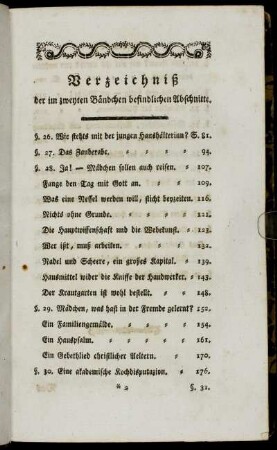 Verzeichniß
der im zweyten Bändchen befindlichen Abschnitte.
§. 26. Wie stehts mit der jungen Haushälterinn? S. 81.
§. 27. Das Zauberabc. 94.
§. 28. Ja! — Mädchen sollen auch reisen. 107.
Fange den Tag mit Gott an. 109.
Was eine Nessel werden will, sticht beyzeiten. 116.
Nichts ohne Grunde. 121.
Die Hauptwissenschaft und die Webekunst. 123.
Wer ißt, muß arbeiten. 132.
Nadel und Scheere, ein großes Kapital. 139.
Hausmittel wider die Kniffe der Handwerker. 143.
Der Krautgarten ist wohl bestellt. 148.
§. 29. Mädchen, was hast in der Fremde gelernt? 150.
Ein Familiengemälde. 154.
Ein Hauspsalm. 161.
Ein Gebethlied christlicher Aeltern. 170.
§. 30. Eine akademische Kochdisputazion. 176.
* 2 §. 31.